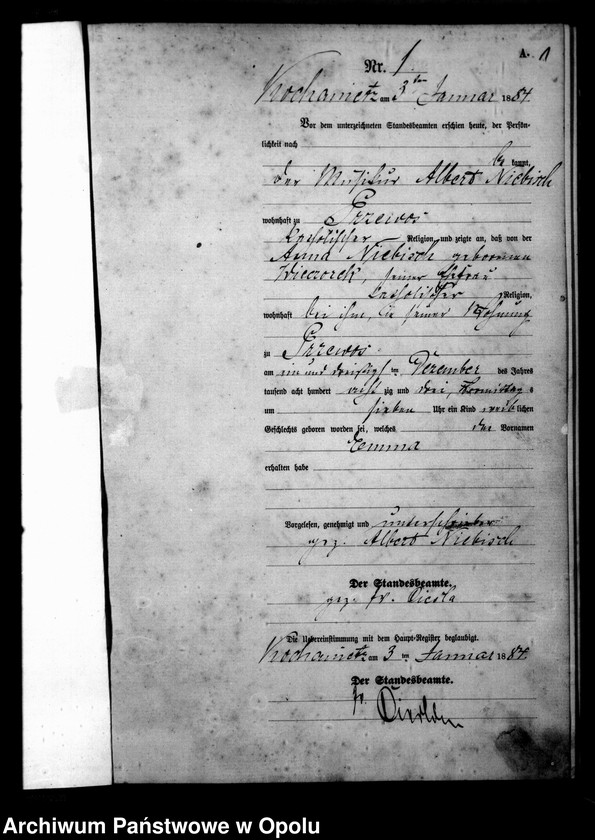 A. 1
Nr. 1
Kochanietz am 3ten Januar 1884.
Vor dem unterzeichneten Standesbeamten erschien heute, der Persön-
lichkeit nach
be kannt,
der Albert Niebisch
wohnhaft zu Przewos
katholischer Religion, und zeigte an, daß von der
Anna Niebisch geborenen
Wieczorek, seiner Ehefrau
katholischer Religion,
wohnhaft bei ihm, in seiner Wohnung
zu Przewos
am ein und dreißigsten Dezember des Jahres
tausend acht hundert acht zig und drei, Vormittags
um sieben Uhr ein Kind weiblichen
Geschlechts geboren worden sei, welches den Vornamen
Emma
erhalten habe
Vorgelesen, genehmigt und unterschrieben
gez. Albert Niebisch
Der Standesbeamte.
gez. fr.
Die Uebereinstimmung mit dem Haupt-Register beglaubigt.
Kochanietz am 3 ten Januar 1884.
Der Standesbeamte.
Archiwum Państwowe w Opolu